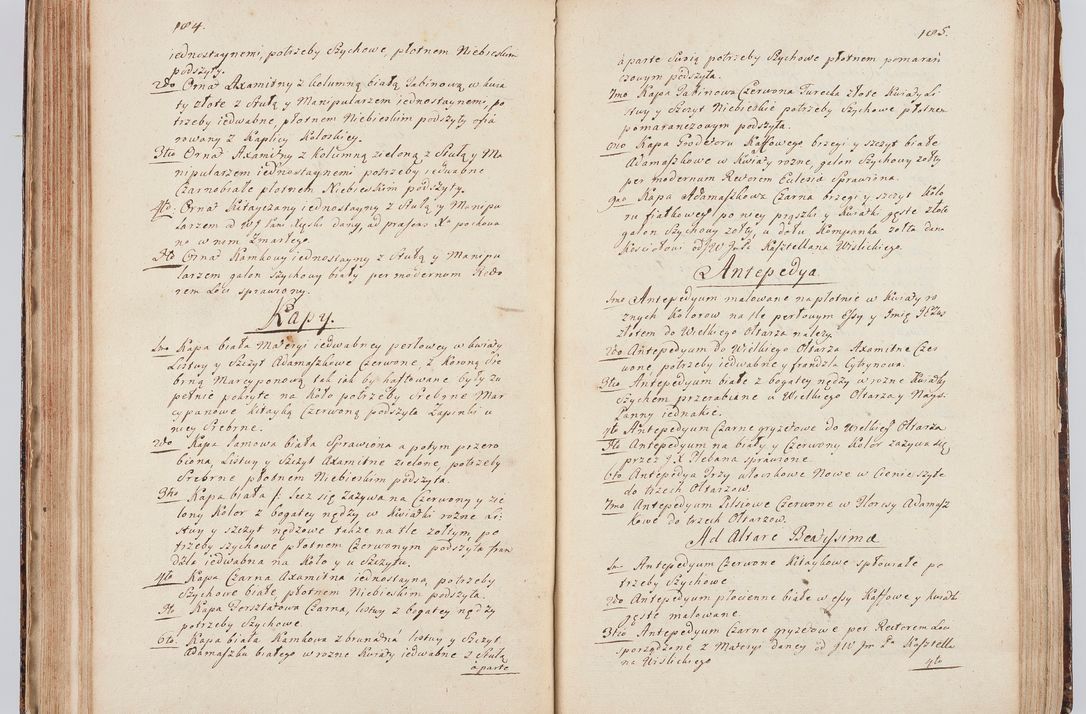 184.
iednostaynemi, potrzeby Szychowe, płotnem Niebieskim
podszyty.
2do Ornat Axamitny z Kolumną białą Tabinową, w kwia
ty złote z Stułą y Manipularzem iednostaynemi, po
trzeby iedwabne, płotnem Niebieskim podszyty ofia
rowany z Kaplicy
3tio Ornat Axamitny z Kolumną zieloną z Stułą y Ma
nipularzem iednostaynemi potrzeby iedwabne
Czarnobiałe płotnem Niebieskim podszyty.
4to Ornat Kitayczany iednostayny z Stułą y Manipu
larzem od dany, ad praesens X. pochowa
no w nim Zmarłego.
5to Ornat Kamkowy iednostayny z Stułą y Manipu
larzem galon Szychowy biały per modernum Recto
rem Loci sprawiony.
Kapy.
1mo Kapa biała Materyi iedwabney perłowey w kwiaty
Listwy y Szczyt Adamaszkowe Czerwone, z Koroną Sre
brną Marcypanową tak iak by haftowane były zu
pełnie pokryte na Koło potrzeby Srebrne Mar
cypanowe kitayką Czerwoną podszyta Zapinki u
niey Srebrne.
2do Kapa Lamowa biała Sprawiona a potym przero
biona, Listwy y Szczyt Axamitne zielone, potrzeby
Srebrne płotnem Niebieskim podszyta.
3tio Kapa biała z Lecz się zazywa na Czerwony y zie
lony Kolor z bogatey nędzy w Kwiatki rożne Li
stwy y szczyt nędzowe także na tle żołtym, po
trzeby szychowe płotnem Czerwonym podszyta fran
dzla iedwabna na Koło y u Szczytu.
4to Kapa Czarna Axamitna iednostayna, potrzeby
Szychowe białe, płotnem Niebieskim podszyta.
5to Kapa Czarna, listwy z bogatey nędzy
potrzeby Szychowe
6to Kapa biała Kamkowa z brunatną listwy y Szczyt
Adamaszku białego w rożne Kwiaty iedwabne z Stułą
à parte
185.
à parte Suvią potrzeby Szychowe płotnem pomarań
czowym podszyta.
7mo Kapa Tabinowa Czerwona Turecka złote Kwiaty Li
stwy y Szczyt Niebieskie potrzeby Szychowe płotnem
pomarańczowym podszyta.
8vo Kapa Grodetoru Kaffowego brzegi y szczyt białe
Adamaszkowe w Kwiaty rożne, galon Szychowy żołty
per modernum Rectorem Eclesiae Sprawiona.
9no Kapa Adamaszkowa Czarna brzegi y szczyt Kolo
ru fiałkowego po niey prążki y Kwiatki gęste złote
galon Szychowy żołty, u dołu Kompanka żołta dana
Kościołowi od JW Jmci Kasztellana Wislickiego.
Antepedya.
1mo Antepedyum malowane na płotnie w Kwiaty ro
znych Kolorow na tle perłowym essy y Jmię JEZUS
złotem do Wielkiego Ołtarza należy.
2do Antepedyum do Wielkiego Ołtarza Axamitne Czer
wone, potrzeby iedwabne y frandzla Cytrynowa.
3tio Antepedyum białe z bogatey nędzy w rożne Kwiatki
szychem przerabiane u Wielkiego Ołtarza y Nays.
Panny iednakie.
4to Antepedyum Czarne gryzetowe do Wielkieg Ołtarza
5to Antepedyum na biały y Czerwony Kolor zażywa się
przez J X Plebana sprawione.
6to Antepedya Trzy włoczkowe Nowe w Cienie szyte
do trzech Ołtarzow.
7mo Antepedyum Pilsiowe Czerwone w Floresy Adamasz
kowe do trzech Ołtarzow.
Ad Altare Beatissimae
1mo Antepedyum Czerwone Kitaykowe spłowiałe po
trzeby Szychowe
2do Antepedyum płocienne białe w essy Kaffowe y kwiatki
gęste malowane.
3tio Antepedyum Czarne gryzetowe per Rectorem Loci
sporządzone z Materyi daney od JW Jmć Pa Kasztella
na Wislickiego
4to